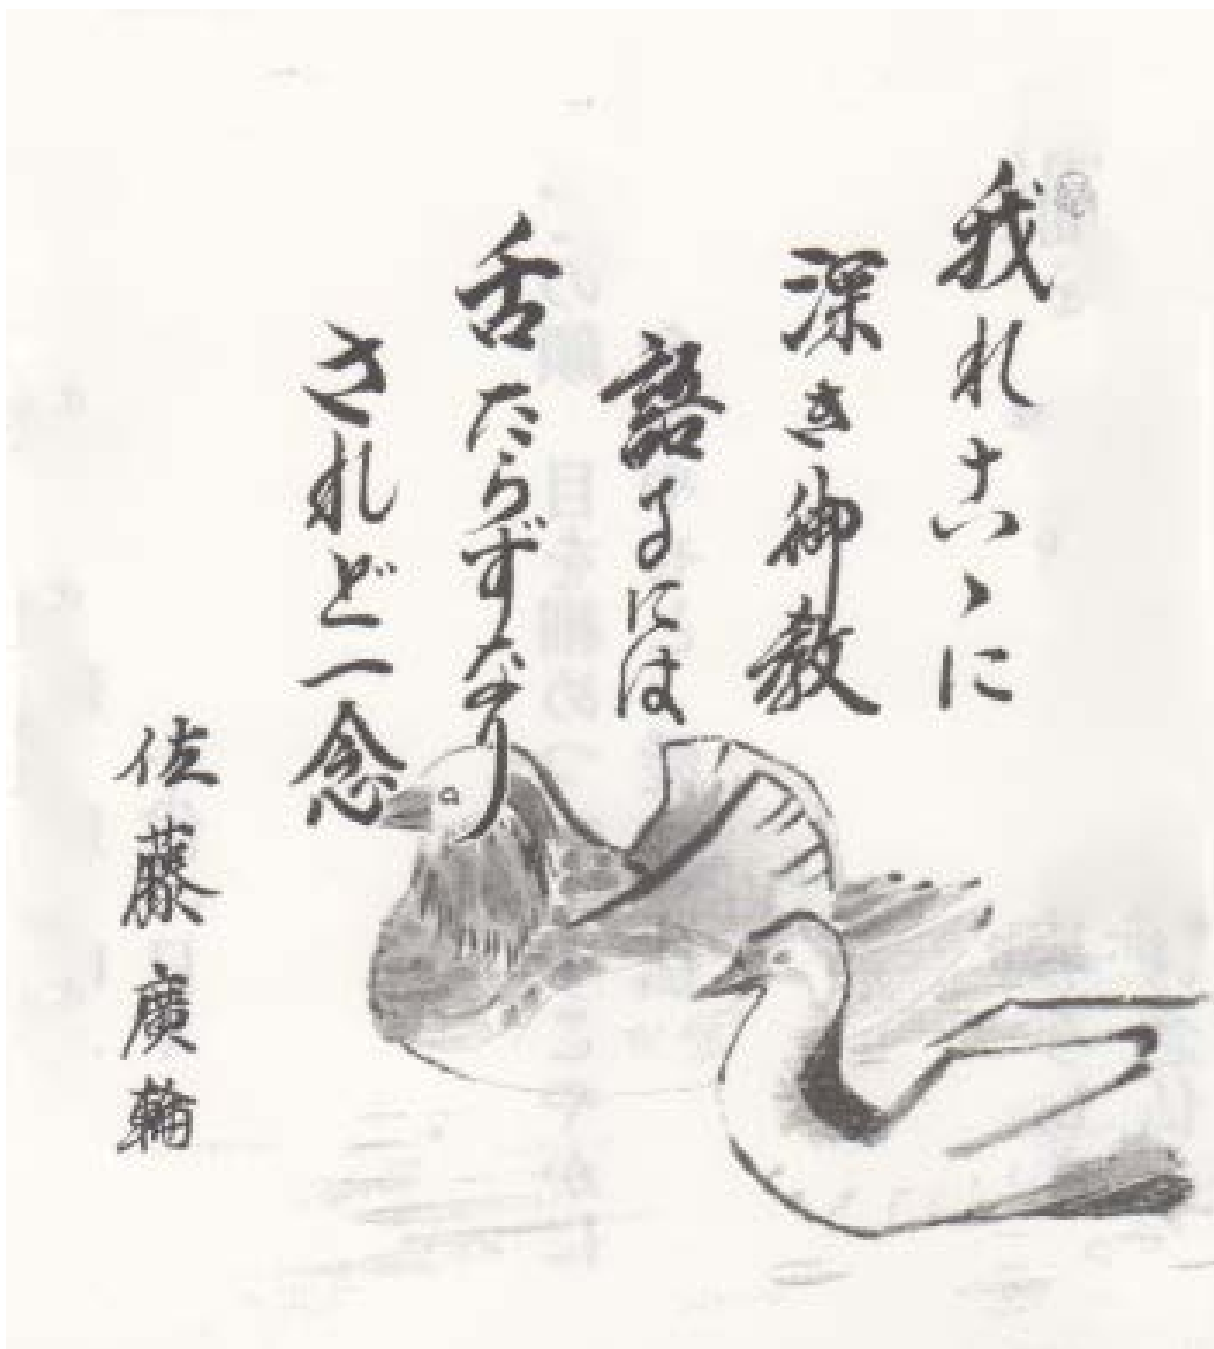 我れ古ゝに
深き御教
語るには
舌たらずなり
されど一念
佐藤廣輪